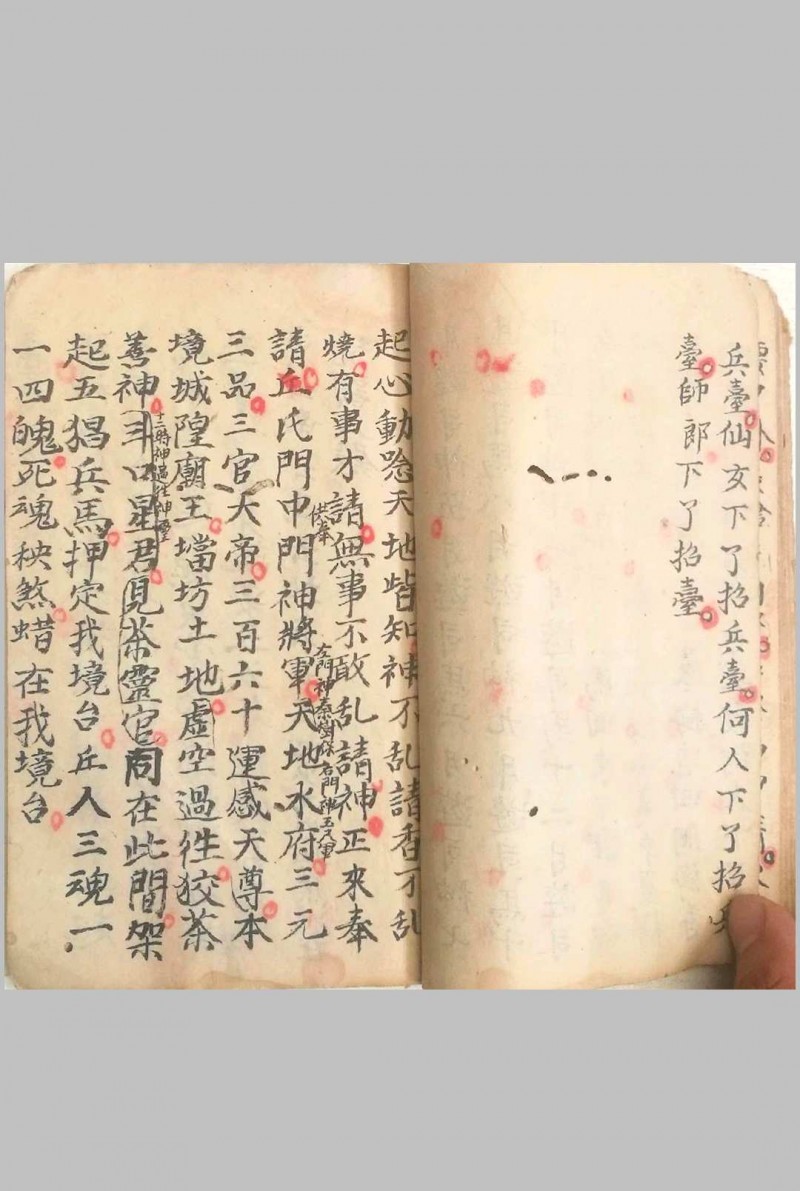 兵臺仙女下了招兵臺何人下了招
臺師郎下了招臺
起心動念天地皆知神不乱請香不乱
燒有事才請無事不敢乱請神正來奉
供奉
請丘氏門中門神將軍天地水府三元
左門神秦 右門神
三品三官大帝三百六十運感天尊本
境城隍廟王壋坊土地虛空過徃狡茶
善神斗口星君見茶靈官同在此間架
十二時神過往神靈
起五猖兵馬押定我境台丘人三魂一
一四魄死魂秧煞蜡在我境台